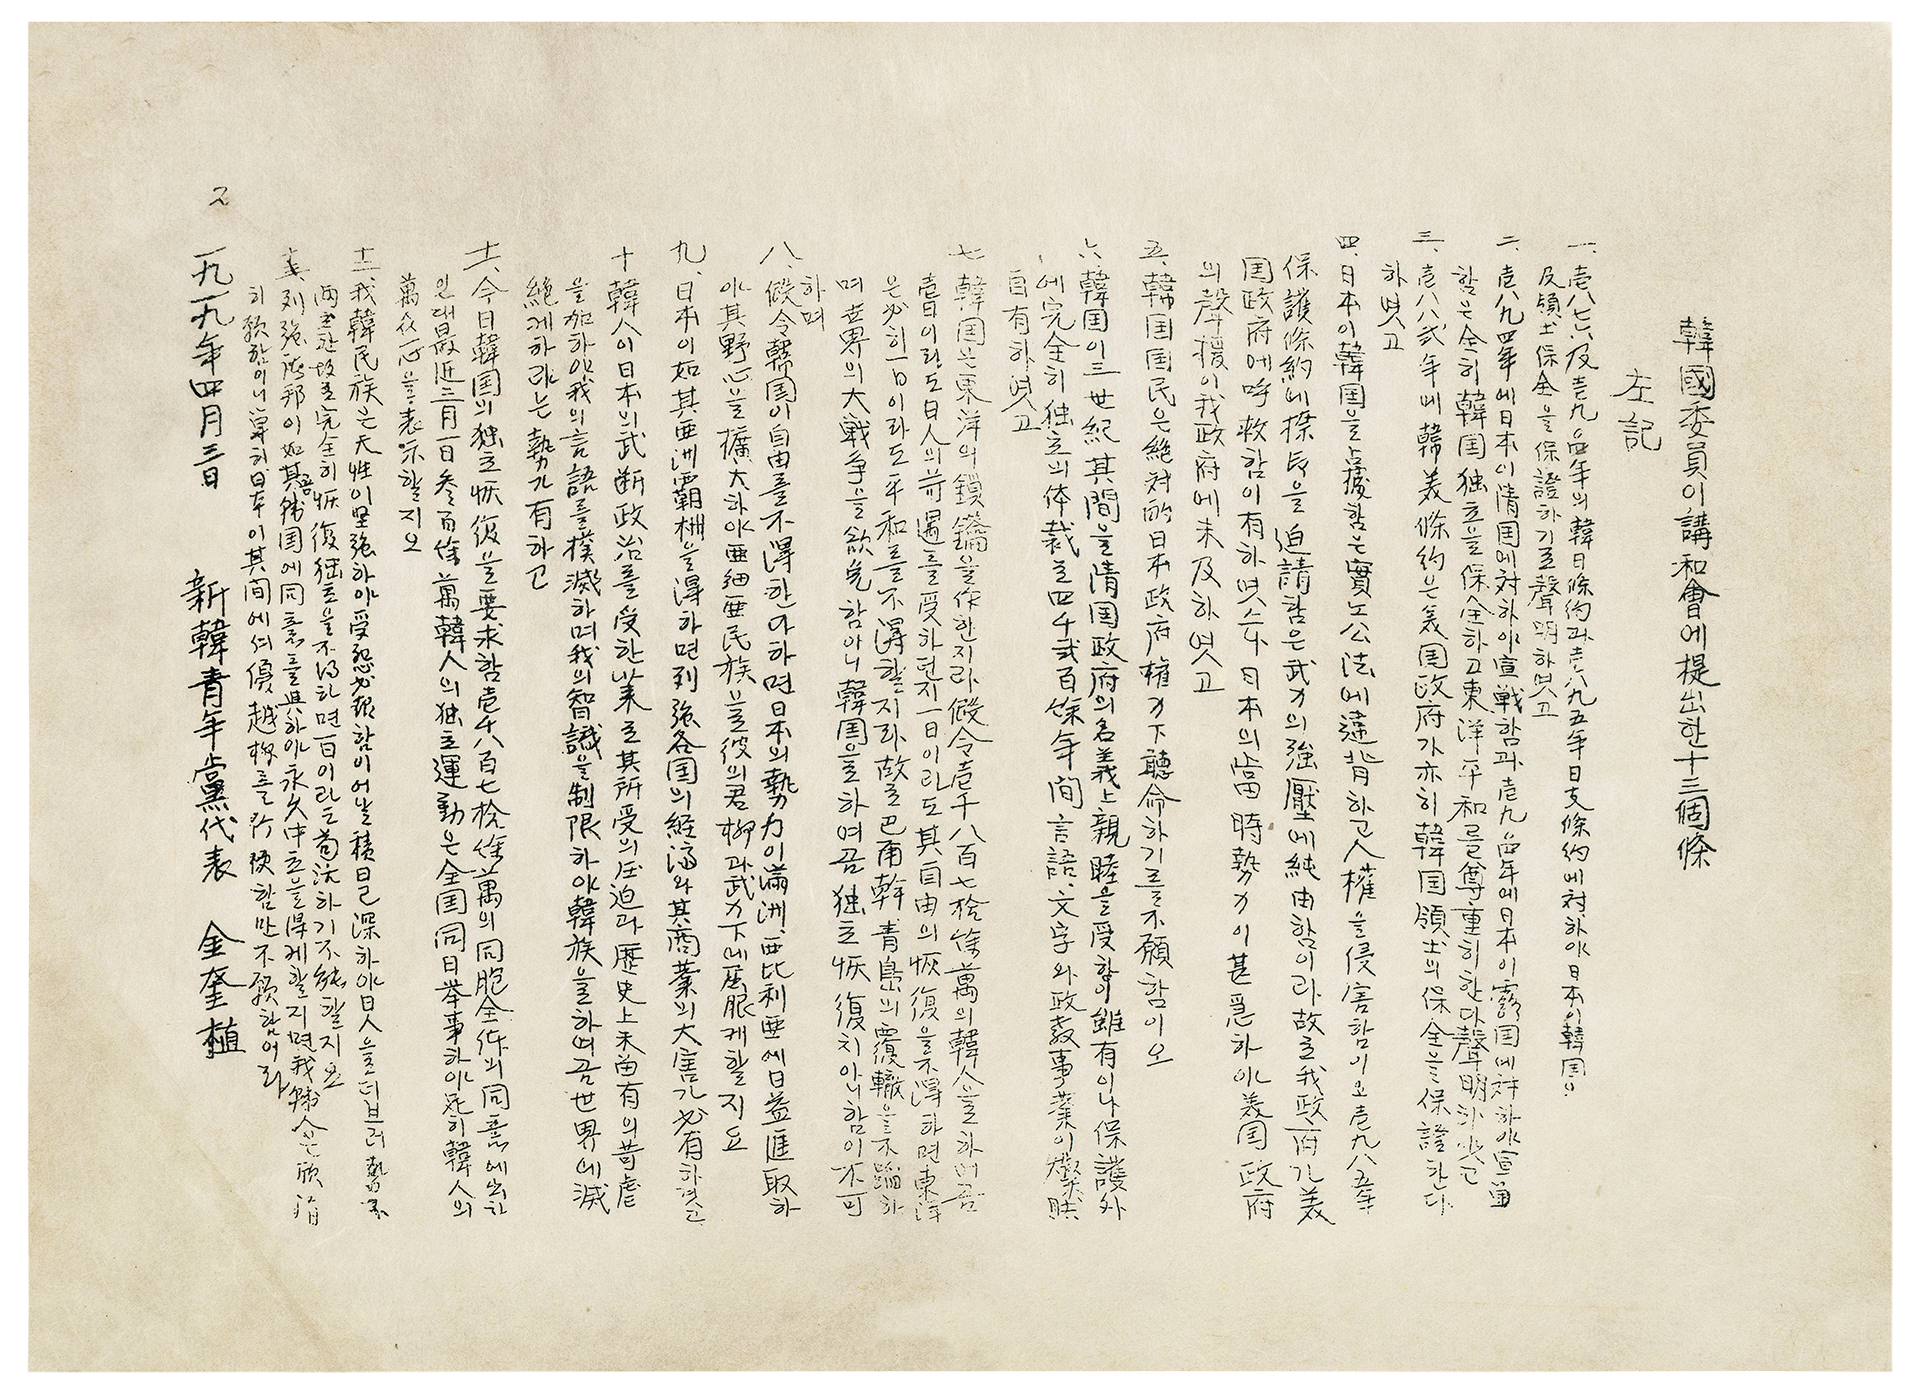 韓國委員이講和會에提出한十三個條
左記
一、壱八七六及壱九四年의韓日條約과壱八九五年日支條約에対하야日本이韓国의
及領土保全을保證하기로聲明하엿고
二、壱八九四年에日本이清国에対하야宣戦함과壱九四年에日本이露国에対하야宣戦
함은全히韓国独立을保全하고東洋平和를尊重히한다聲明하얏고
三、壱八八弐年에韓美條約은美国政府가亦히韓国領土의保全을保證한다
하엿고
四、日本이韓国을占據함는實노公法에違背하고人權을侵害함이오壱九八五年
保護條約에捺印을迫請함은武力의強壓에純由함이라故로我政府가美
国政府에呼救함이有하엿스나日本의當時勢力이甚急하야美国政府
의聲援이我政府에未及하엿고
五、韓国国民은絶対的日本政府權力下聽命하기를不願함이오
六、韓国이三世紀其間을清国政府의名義上親睦을受함이雖有이나保護外
에完全히独立의体裁로四千弐百餘年間言語、文字와政教事業이燦然
自有하엿고
七、韓国은東洋의鎖鑰을作한지라假令壱千八百七拾餘萬의韓人을하여곰
壱日이라도日人의苛遇를受하던지一日이라도其自由의恢復을不得하면東洋
은必히一日이라도平和를不得할지라故로巴甫幹青島의覆轍을不踰하
며世界의大戦争을欲免함아니韓国을하여곰独立恢復치아니함이不可
하며
八、假令韓国이自由를不得한다하면日本의勢力이滿洲、西比利亜에日益進取하
야其野心을擴大하야亜細亜民族을彼의君權과武力下에屈服케할지요
九、日本이如其亜洲覇權을得하면列強各国의経済와其商業의大害가必有하겟고
十、韓人이日本의武断政治를受한以來로其所受의圧迫과歴史上未曾有의苛虐
을加하야我의言語를撲滅하며我의智識을制限하야韓族을하여곰世界에滅
絶케하라는勢가有하고
十一、今日韓国의独立恢復을要求함壱千八百七拾餘萬의同胞全体의同意에出한
인대最近三月一日叁百餘萬韓人의独立運動은全国同日挙事하야死히韓人의
萬衆一心을表示할지오
十二、我韓民族은天性이堅強하야受怨必報함이어날積日已深하야日人을더브러勢不
両立한故로完全히恢復独立을不得하면一日이라도苟活하기不能할지요
十三、列強應邦이如其韓国에同意를與하야永久中立을得케할지면我韓人은欣消
히額한이니單히日本이其間에셔優越權를行使함만不願함어라
一九一九年四月三日
新韓青年黨代表 金奎植